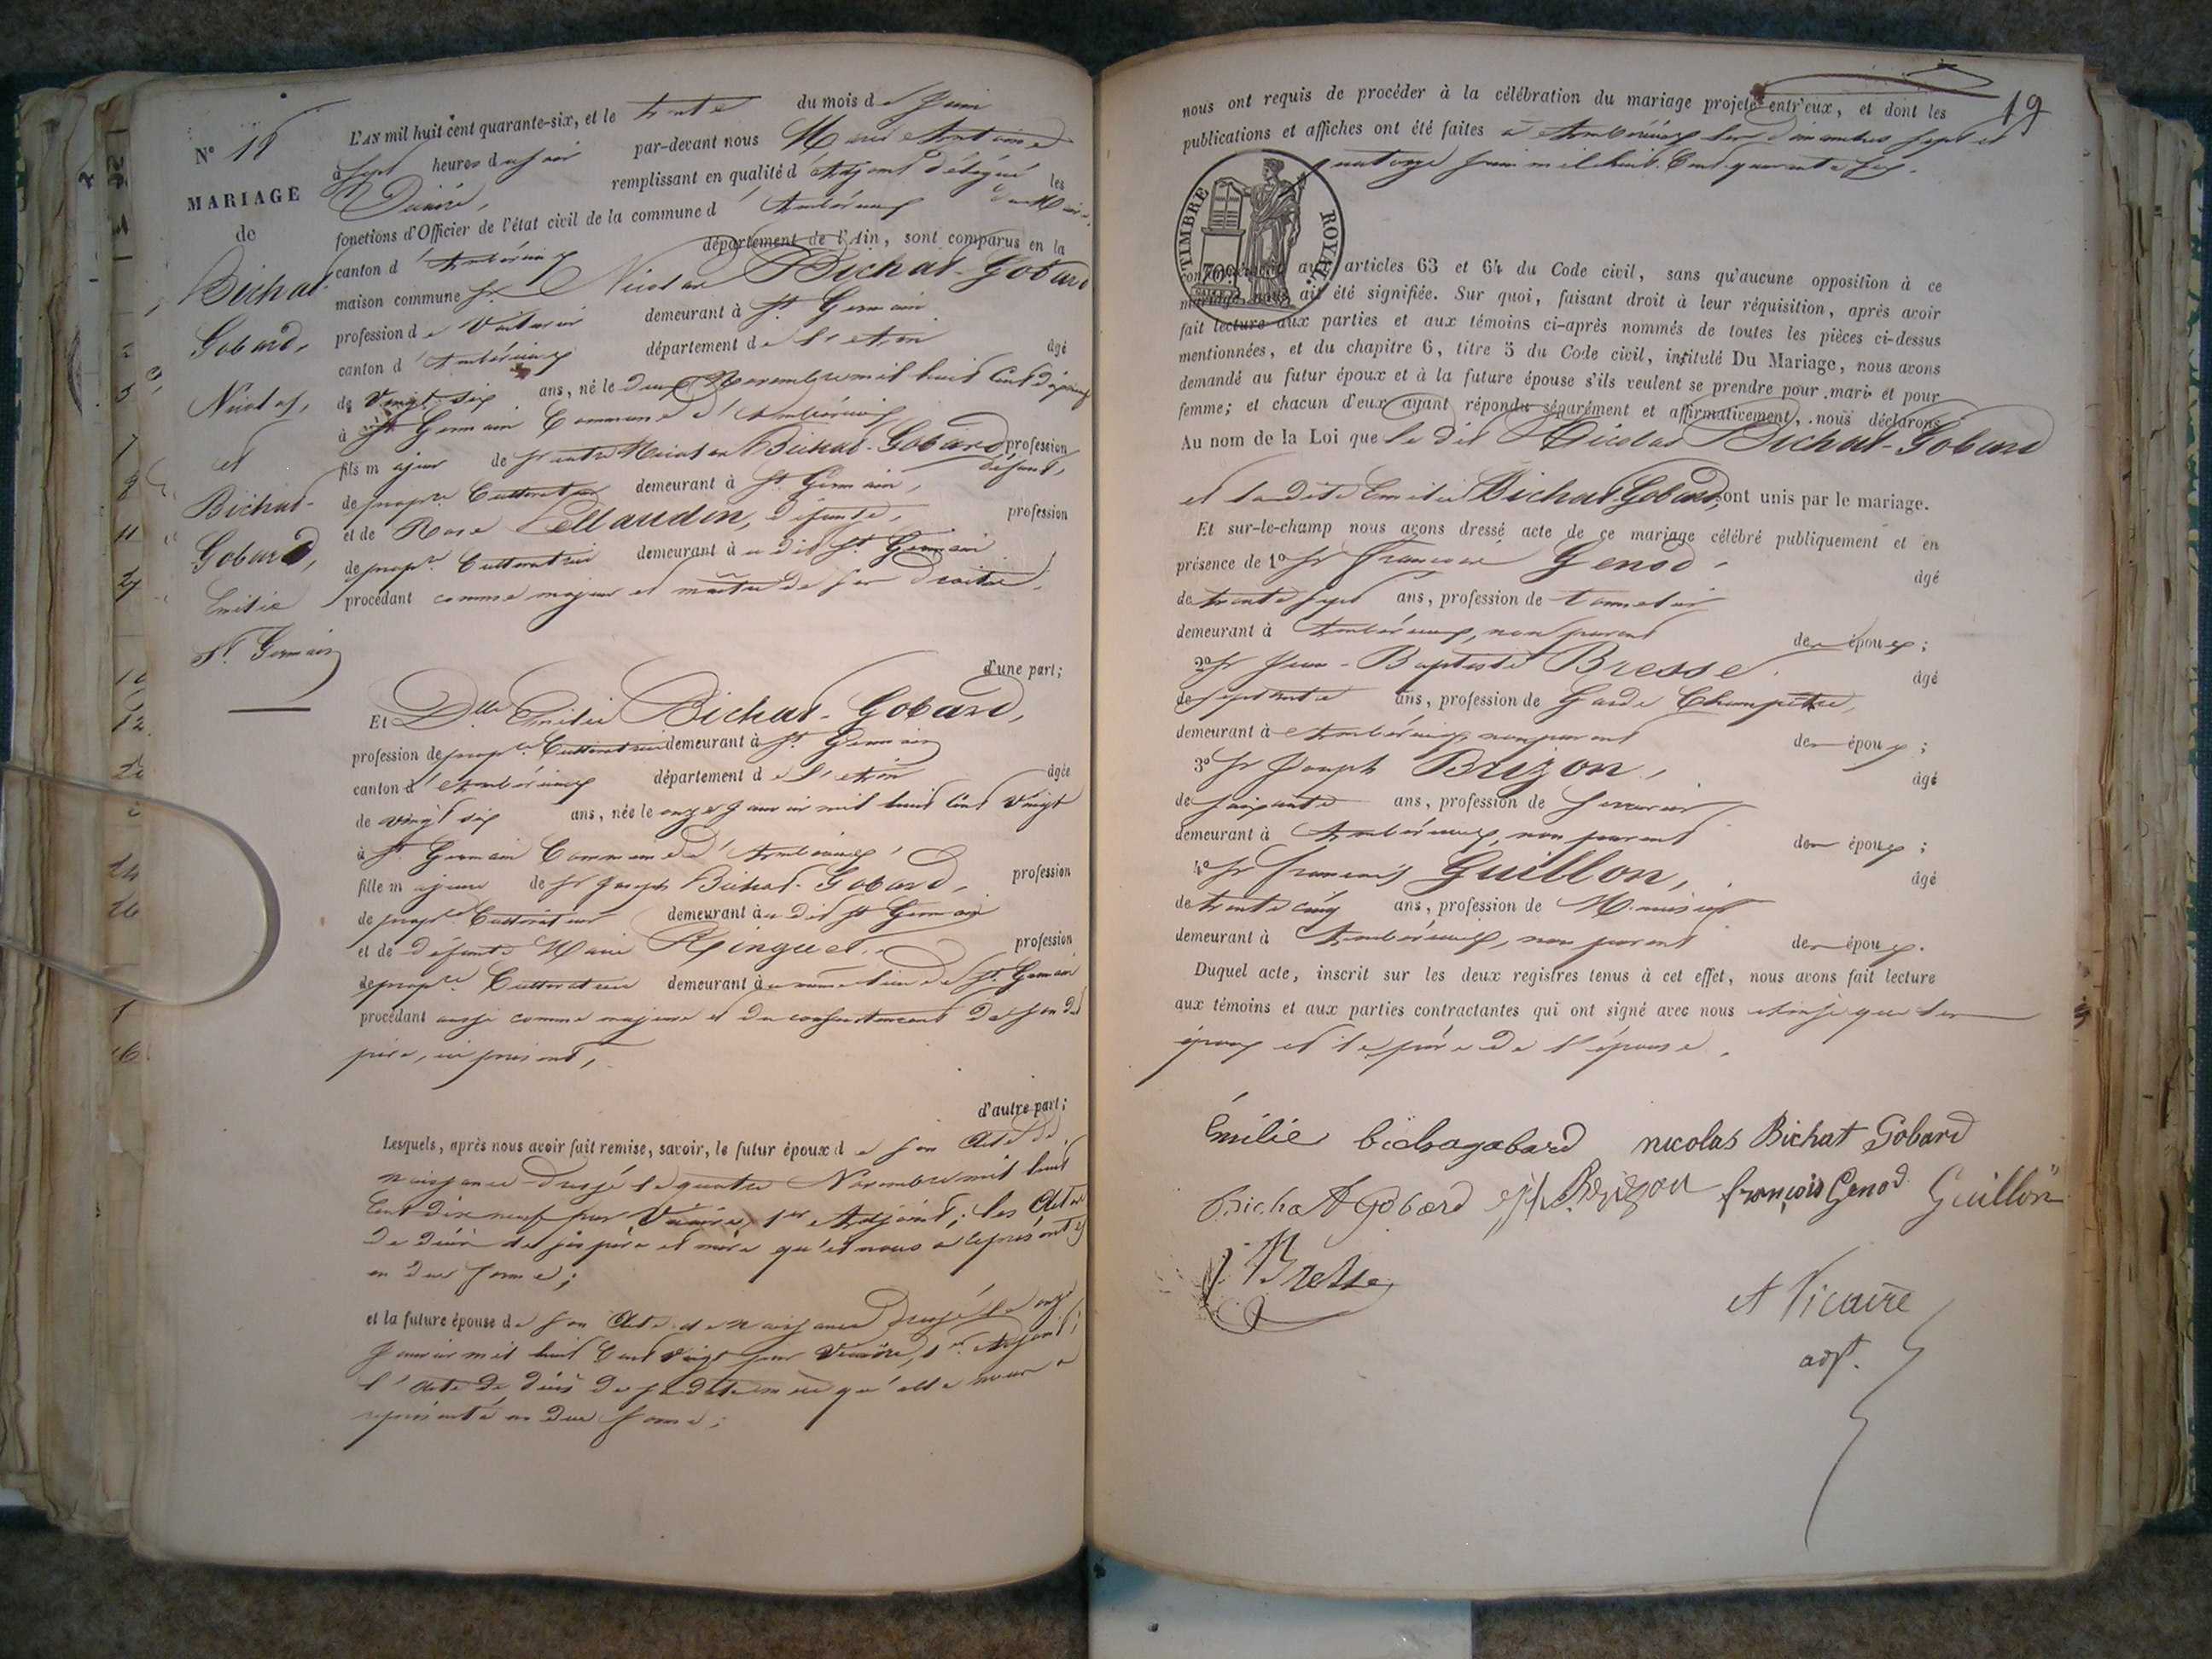 N° 18
MARIAGE
de
Bichat
Gobard,
Nicolas,
et
Bichat-
Gobard,
Emilie
St. Germain
L'AN mil huit cent quarante-six, et le trente du mois de Juin
à sept heures du soir par-devant nous Marie Antoine
Vicaire, remplissant en qualité d'Adjoint délégué les
fonctions d'Officier de l'état civil de la commune d'Ambérieux
canton d'Ambérieux département de l'Ain, sont comparus en la
maison commune Sr. Nicolas Bichat-Gobard
profession de demeurant à St. Germain
canton d'Ambérieux département de l'Ain âgé
de Vingt-six ans, né le deux Novembre mil huit Cent dix neuf
à St Germain Commune d'Ambérieux
fils majeur de Bichat-Gobard, profession
défunt,
de propre. Cultivateur demeurant à St. Germain,
et de Rose défunte, profession
de propre. Cultivatrice demeurant à dit St. Germain
procédant comme majeur et maître de ses droits.
d'une part;
Et Dlle Emilie Bichat-Gobard,
profession de propre. Cultivatrice demeurant à St. Germain
canton d'Ambérieux département de l'Ain âgée
de vingt six ans, née le onze Janvier mil huit Cent Vingt
à St. Germain Commune d'Ambérieux
fille majeure de Sr Joseph Bichat-Gobard, profession
de propre. Cultivateur demeurant au dit St Germain
et de défunte Marie Ringuet, profession
de propre. Cultivatrice demeurant au même lieu de St. Germain
procédant aussi comme majeure et du consentement de son dit
père, ici présent,
d'autre part;
Lesquels, après nous avoir fait remise, savoir, le futur époux de son Acte de
naissance dressé le quatre Novembre mil huit
Cent dix neuf par Vicaire, 1er Adjoint; les Actes
de décès de ses père et mère qu'il nous a représentés
en due forme;
et la future épouse de son Acte de naissance dressé le onze
Janvier mil huit Cent Vingt par Vicaire, 1er. Adjoint;
l'Acte de décès de sa dite mère qu'elle nous a
représenté en due forme;
19
nous ont requis de procéder à la célébration du mariage projeté entr'eux, et dont les
publications et affiches ont été faites à Ambérieux les dimanches sept et
quatorze Juin mil huit Cent quarante six.
TIMBRE ROYAL
aux articles 63 et 64 du Code civil, sans qu'aucune opposition à ce
mariage nous ait été signifiée. Sur quoi, faisant droit à leur réquisition, après avoir
fait lecture aux parties et aux témoins ci-après nommés de toutes les pièces ci-dessus
mentionnées, et du chapitre 6, titre 5 du Code civil, intitulé Du Mariage, nous avons
demandé au futur époux et à la future épouse s'ils veulent se prendre pour mari et pour
femme; et chacun d'eux ayant répondu séparément et affirmativement, nous déclarons
Au nom de la Loi que le dit Nicolas Bichat-Gobard
et la dite Emilie Bichat-Gobard, sont unis par le mariage.
Et sur-le-champ nous avons dressé acte de ce mariage célébré publiquement et en
présence de 1° Sr François Genod, âgé
de trente sept ans, profession de tonnelier
demeurant à Ambérieux, non parent des époux;
2° Sr Jean-Baptiste Bresse, âgé
de septante ans, profession de Garde Champêtre,
demeurant à Ambérieux non parent des époux;
3° Sr Joseph Brizon, âgé
de soixante ans, profession de Serrurier
demeurant à Ambérieux, non parent des époux;
4° Sr François Guillon, âgé
de trente cinq ans, profession de Menuisier
demeurant à Ambérieux, non parent des époux.
Duquel acte, inscrit sur les deux registres tenus à cet effet, nous avons fait lecture
aux témoins et aux parties contractantes qui ont signé avec nous ainsi que les
époux et le père de l'épouse.
Émilie bichagobard nicolas Bichat Gobard
Bichat Gobard françois Genod Guillon
J. Bresse
A Vicaire
adjt.